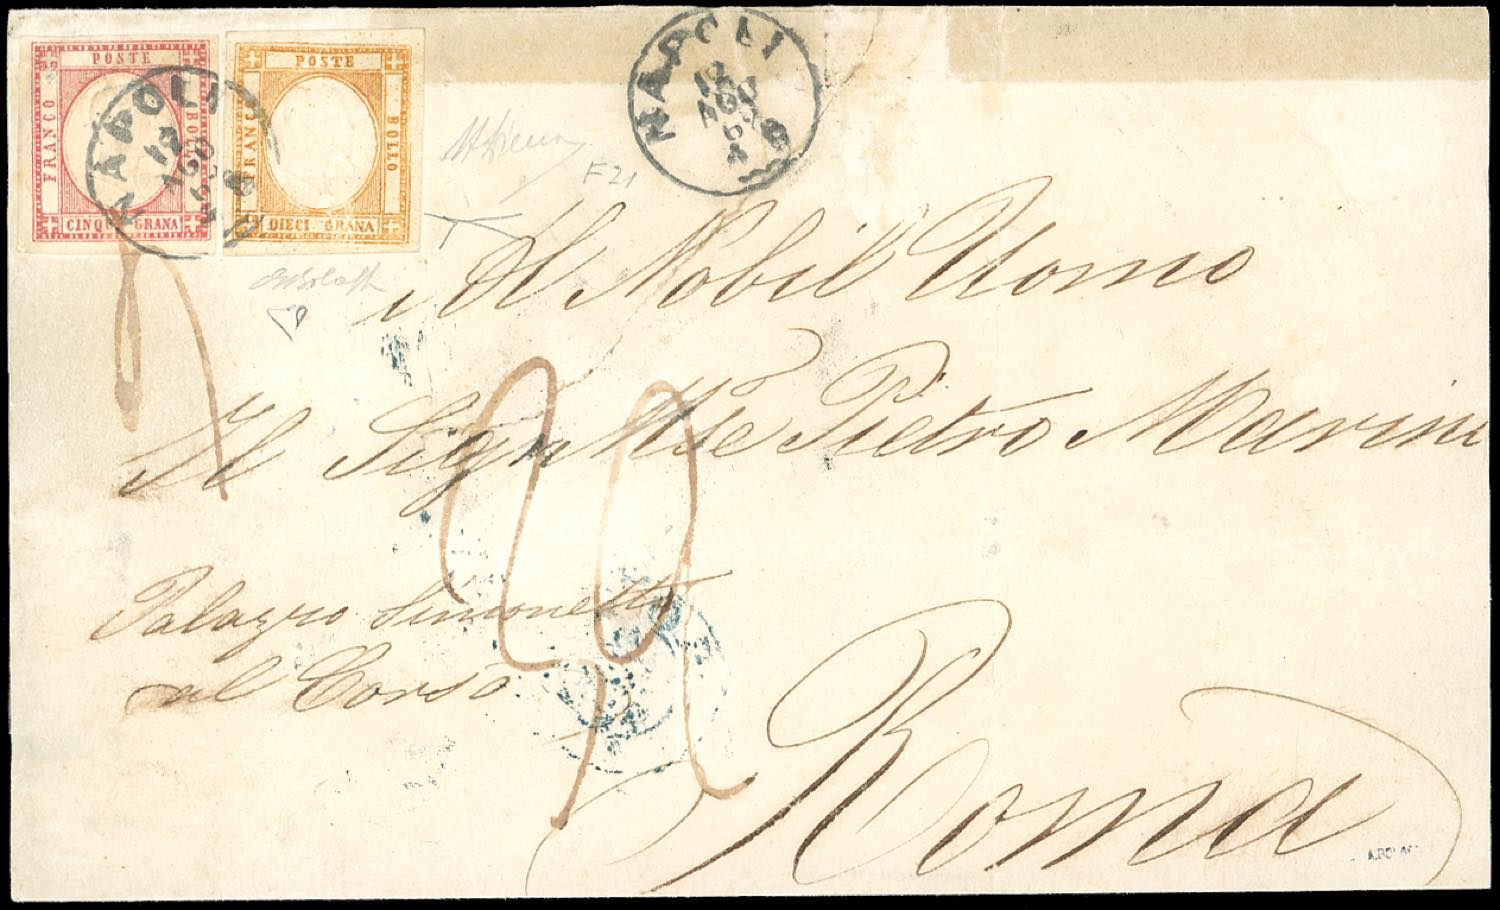 POSTE
FRANCO
BOLLO
CINQUE GRANA
POSTE
FRANCO
BOLLO
DIECI GRANA
NAPOLI
12
AGO
NAPOLI
12
AGO
F21
Al Nobil Uomo
Il Sigr Mse Pietro Marini
Palazzo Simonetti
al Corso
Roma